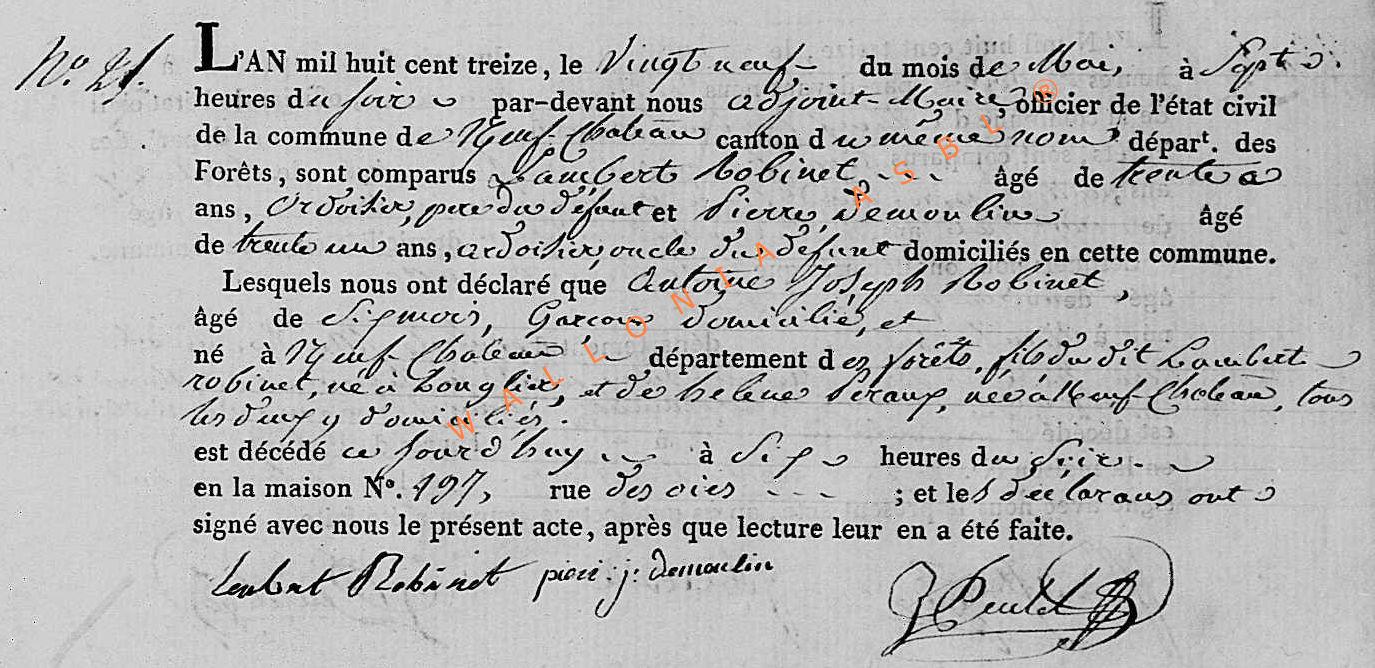 L'AN mil huit cent treize, le Vingt neuf du mois de Mai, à Sept
heures du soir par-devant nous adjoint-Maire, officier de l'état civil
de la commune de Neuf-Chateau canton du même nom départ. des
Forêts, sont comparus Lambert Robinet âgé de trente
ans, Ardoisier, pere du défunt et Pierre Demoulin âgé
de trente un ans, ardoisier, oncle du défunt domiciliés en cette commune.
Lesquels nous ont déclaré que Antoine Joseph Robinet,
âgé de Six mois, Garçon domicilié, et
né à Neuf-Chateau département dez forêts, fils du dit Lambert
robinet, né à Longlier, et de helene Peraux, née à Neuf-Chateau, tous
les deux y domiciliés.
est décédé ce jourd'huy à Six heures du Soir
en la maison N°. 197, rue des oies ; et les déclarans ont
signé avec nous le présent acte, après que lecture leur en a été faite.
Lambert Robinet piere : j : demoulin
WALLONIA ASBL ®